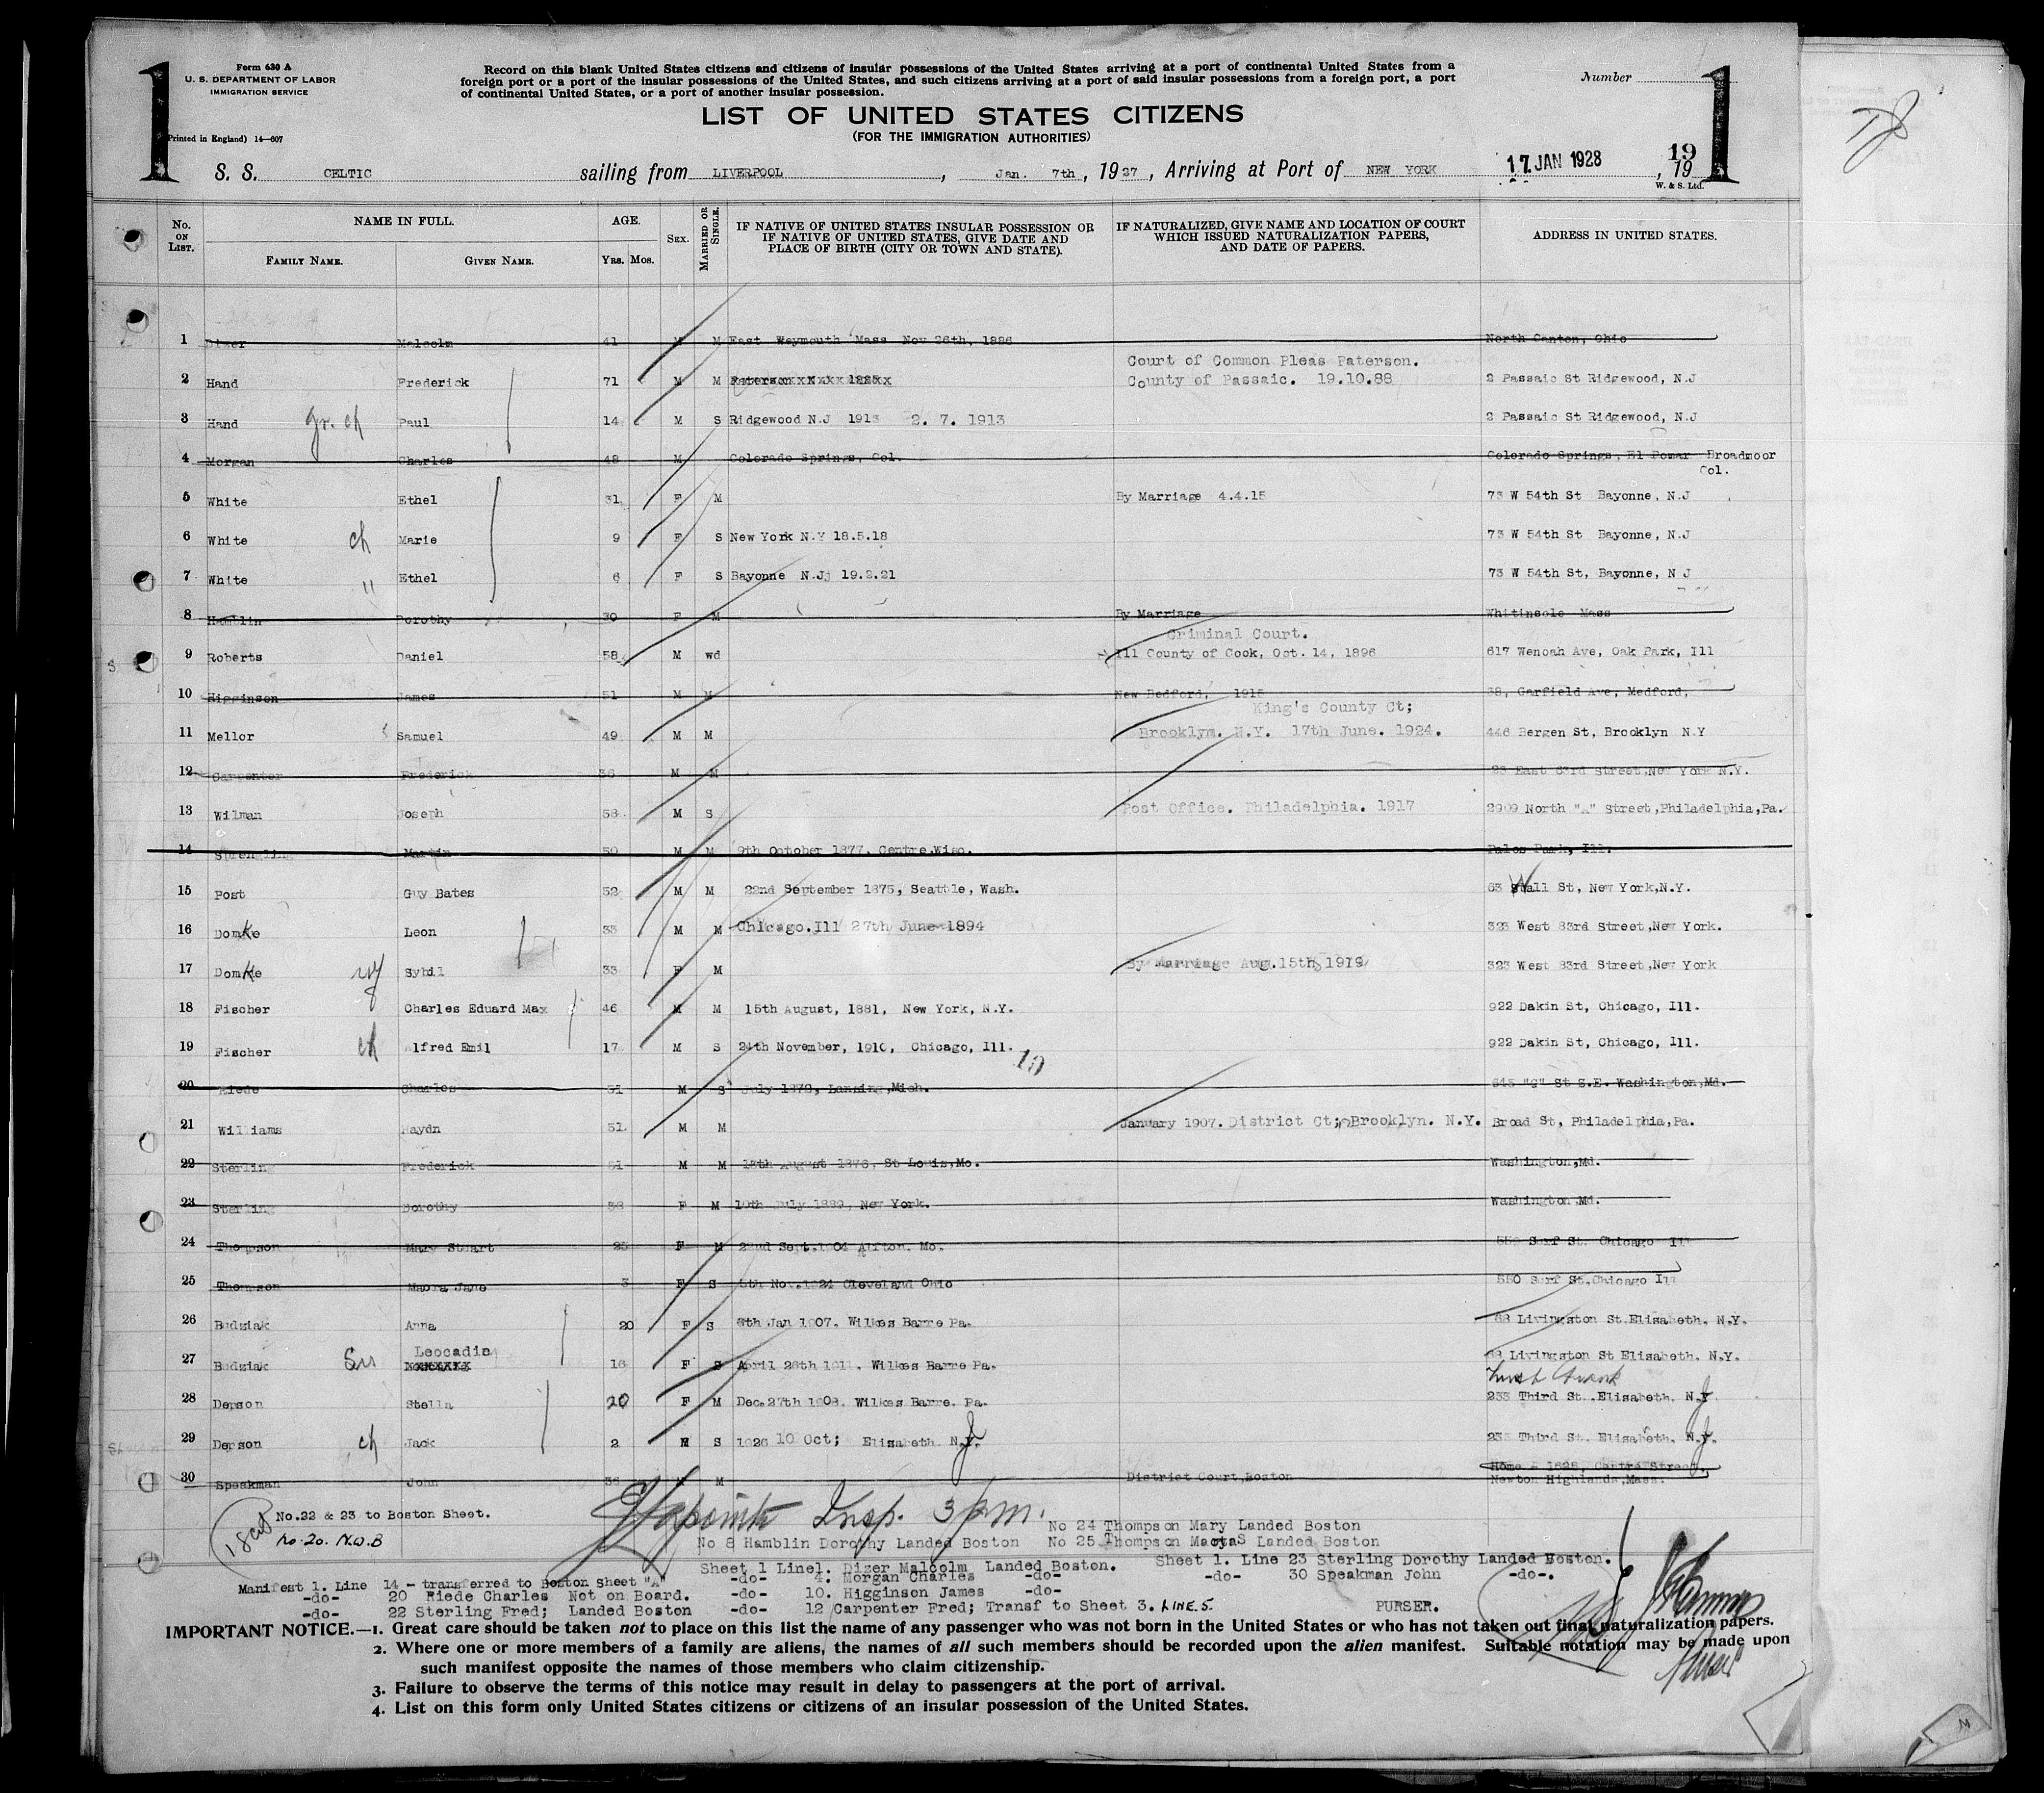 1
Form 630 A
U. S. DEPARTMENT OF LABOR
IMMIGRATION SERVICE
(Printed in England) 14—607
Record on this blank United States citizens and citizens of insular possessions of the United States arriving at a port of continental United States from a
foreign port or a port of the insular possessions of the United States, and such citizens arriving at a port of said insular possessions from a foreign port, a port
of continental United States, or a port of another insular possession.
Number
1
LIST OF UNITED STATES CITIZENS
(FOR THE IMMIGRATION AUTHORITIES)
S. S. CELTIC sailing from LIVERPOOL, Jan. 7th, 1927, Arriving at Port of NEW YORK 17 JAN 1928, 19
19
W. & S. Ltd.
No. ON LIST. NAME IN FULL. FAMILY NAME. GIVEN NAME. AGE. Yrs. Mos. SEX. MARRIED OR SINGLE. IF NATIVE OF UNITED STATES INSULAR POSSESSION OR IF NATIVE OF UNITED STATES, GIVE DATE AND PLACE OF BIRTH (CITY OR TOWN AND STATE). IF NATURALIZED, GIVE NAME AND LOCATION OF COURT WHICH ISSUED NATURALIZATION PAPERS, AND DATE OF PAPERS. ADDRESS IN UNITED STATES.
1 Dizer Malcolm 41 M M East Weymouth Mass Nov 26th, 1886 North Canton, Ohio
Court of Common Pleas Paterson.
2 Hand Frederick 71 M M Paterson County of Passaic. 19.10.88 2 Passaic St Ridgewood, N.J
3 Hand gr. ch Paul 14 M S Ridgewood N.J 1913 2. 7. 1913 2 Passaic St Ridgewood, N.J
4 Morgan Charles 48 M Colorado Springs, Col. Colorado Springs, El Pomar Broadmoor
Col.
5 White Ethel 31 F M By Marriage 4.4.15 73 W 54th St Bayonne, N.J
6 White ch Marie 9 F S New York N.Y 18.5.18 73 W 54th St Bayonne, N.J
7 White " Ethel 6 F S Bayonne N.J 19.2.21 73 W 54th St, Bayonne, N J
8 Hamblin Dorothy 30 F M By Marriage Whitinsole Mass
Criminal Court.
9 Roberts Daniel 58 M wd Ill County of Cook, Oct. 14, 1896 617 Wenoah Ave, Oak Park, Ill
10 Higginson James 51 M M New Bedford, 1915 38, Garfield Ave, Medford,
King's County Ct;
11 Mellor Samuel 49 M M Brooklyn. N.Y. 17th June. 1924. 446 Bergen St, Brooklyn N.Y
12 Carpenter Frederick 36 M M 23 East 63rd Street, New York N.Y.
13 Wilman Joseph 58 M S Post Office. Philadelphia. 1917 2909 North "A" Street, Philadelphia, Pa.
14 Sprengling Martin 50 M M 9th October 1877, Centre Wisc. Palos Park, Ill.
15 Post Guy Bates 52 M M 22nd September 1875, Seattle, Wash. 63 Wall St, New York, N.Y.
16 Domke Leon 33 M M Chicago. Ill 27th June 1894 323 West 83rd Street, New York.
17 Domke Sybil 33 F M By Marriage Aug. 15th 1919 323 West 83rd Street, New York
18 Fischer Charles Eduard Max 46 M M 15th August, 1881, New York, N.Y. 922 Dakin St, Chicago, Ill.
19 Fischer ch Alfred Emil 17 M S 24th November, 1910, Chicago, Ill. 10 922 Dakin St, Chicago, Ill.
20 Riede Charles 51 M S July 1876, Lansing, Mich. 645 "G" St S.E. Washington, Md.
21 Williams Haydn 51 M M January 1907. District Ct; Brooklyn. N.Y. Broad St, Philadelphia, Pa.
22 Sterling Frederick 51 M M 13th August 1876, St Louis, Mo. Washington, Md.
23 Sterling Dorothy 38 F M 10th July 1889, New York. Washington Md.
24 Thompson Mary Stuart 23 F M 22nd Sept. 1904 Alton. Mo. 550 Surf St. Chicago Ill
25 Thompson Jane 3 F S 5th Nov. 1924 Cleveland Ohio 550 Surf St. Chicago Ill
26 Budziak Anna 20 F S 6th Jan 1907. Wilkes Barre Pa. 68 Livingston St. Elisabeth. N.Y.
27 Budziak Sis Leocadia 16 F S April 28th 1911. Wilkes Barre Pa. 68 Livingston St Elisabeth. N.Y.
28 Depson Stella 20 F M Dec. 27th 1908. Wilkes Barre. Pa. 233 Third St. Elisabeth. N.J
29 Depson ch Jack 2 M S 1926 10 Oct; Elisabeth N.J. 233 Third St. Elisabeth. N.J.
30 Speakman John 36 M M District Court, Boston Home 1628, Centre Street,
Newton Highlands, Mass.
18 cit
No. 22 & 23 to Boston Sheet.
No. 20. N.O.B
Insp. 3 pm.
No 24 Thompson Mary Landed Boston
No 8 Hamblin Dorothy Landed Boston No 25 Thompson Landed Boston
Sheet 1 Line 1. Dizer Malcolm Landed Boston. Sheet 1. Line 23 Sterling Dorothy Landed Boston.
Manifest 1. Line 14 - transferred to Boston Sheet "A" -do- 4. Morgan Charles -do- -do- 30 Speakman John -do-.
-do- 20 Riede Charles Not on Board. -do- 10. Higginson James -do-
-do- 22 Sterling Fred; Landed Boston -do- 12 Carpenter Fred; Transf to Sheet 3. LINE. 5. PURSER.
IMPORTANT NOTICE.—1. Great care should be taken not to place on this list the name of any passenger who was not born in the United States or who has not taken out final naturalization papers.
2. Where one or more members of a family are aliens, the names of all such members should be recorded upon the alien manifest. Suitable notation may be made upon
such manifest opposite the names of those members who claim citizenship.
3. Failure to observe the terms of this notice may result in delay to passengers at the port of arrival.
4. List on this form only United States citizens or citizens of an insular possession of the United States.